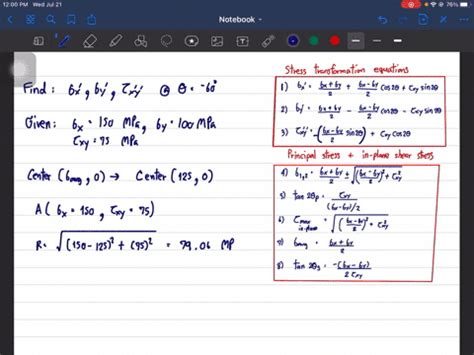 12:00 PM Wed Jul 21
76%
Notebook
Find : σx', σy', τx'y' @ θ = -60°
Given: σx = 150 MPa, σy = 100 MPa
τxy = 75 MPa
Center (σavg, 0) → Center (125, 0)
A ( σx = 150 , τxy = 75 )
R = √((150 - 125)² + (75)²) = 79.06 MP
Stress transformation equations
1) σx' = (σx + σy)/2 + (σx - σy)/2 cos 2θ + τxy sin 2θ
2) σy' = (σx + σy)/2 - (σx - σy)/2 cos 2θ - τxy sin 2θ
3) τx'y' = -((σx - σy)/2 sin 2θ) + τxy cos 2θ
Principal stress + in-plane shear stress
4) σ1,2 = (σx + σy)/2 ± √(((σx - σy)/2)² + τxy²)
5) tan 2θp = τxy/((σx - σy)/2)
6) τmax in-plane = √(((σx - σy)/2)² + τxy²)
7) σavg = (σx + σy)/2
8) tan 2θs = -(σx - σy)/(2 τxy)